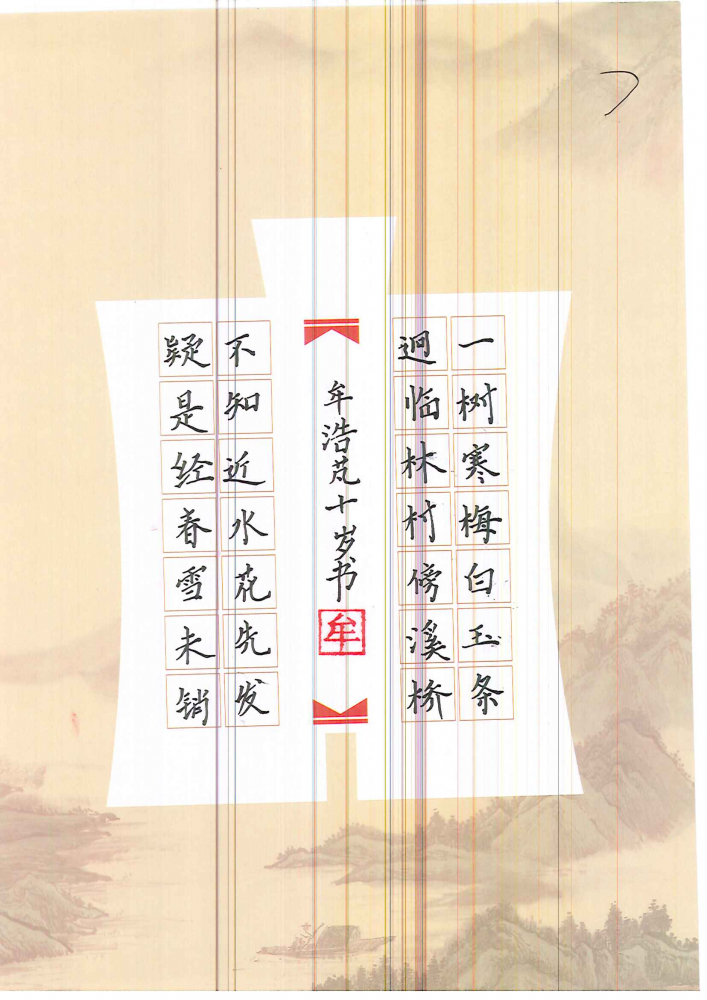 一树寒梅白玉条
迥临林村傍溪桥
牟浩芃十岁书
牟
不知近水花先发
疑是经春雪未销